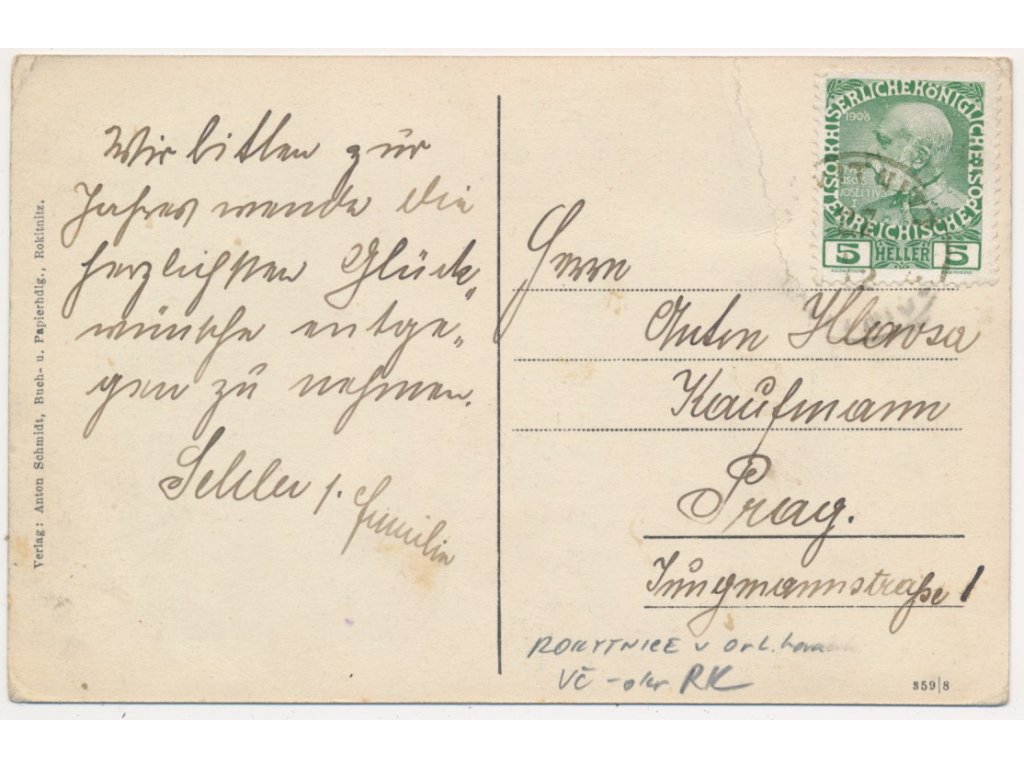 Wir bitten zur
Jahres wende die
herzlichsten Glück-
wünsche entge-
gen zu nehmen.
Familie
Verlag: Anton Schmidt, Buch- u. Papierhdlg., Rokitnitz.
K.K. OESTERREICHISCHE POST
KAISERLICHE KÖNIGLICHE
1908
5 HELLER 5
Herrn
Anton Hlavsa
Kaufmann
Prag.
Jungmannstraße 1
ROKYTNICE v Orl. horách
VČ - okr RK
359/8